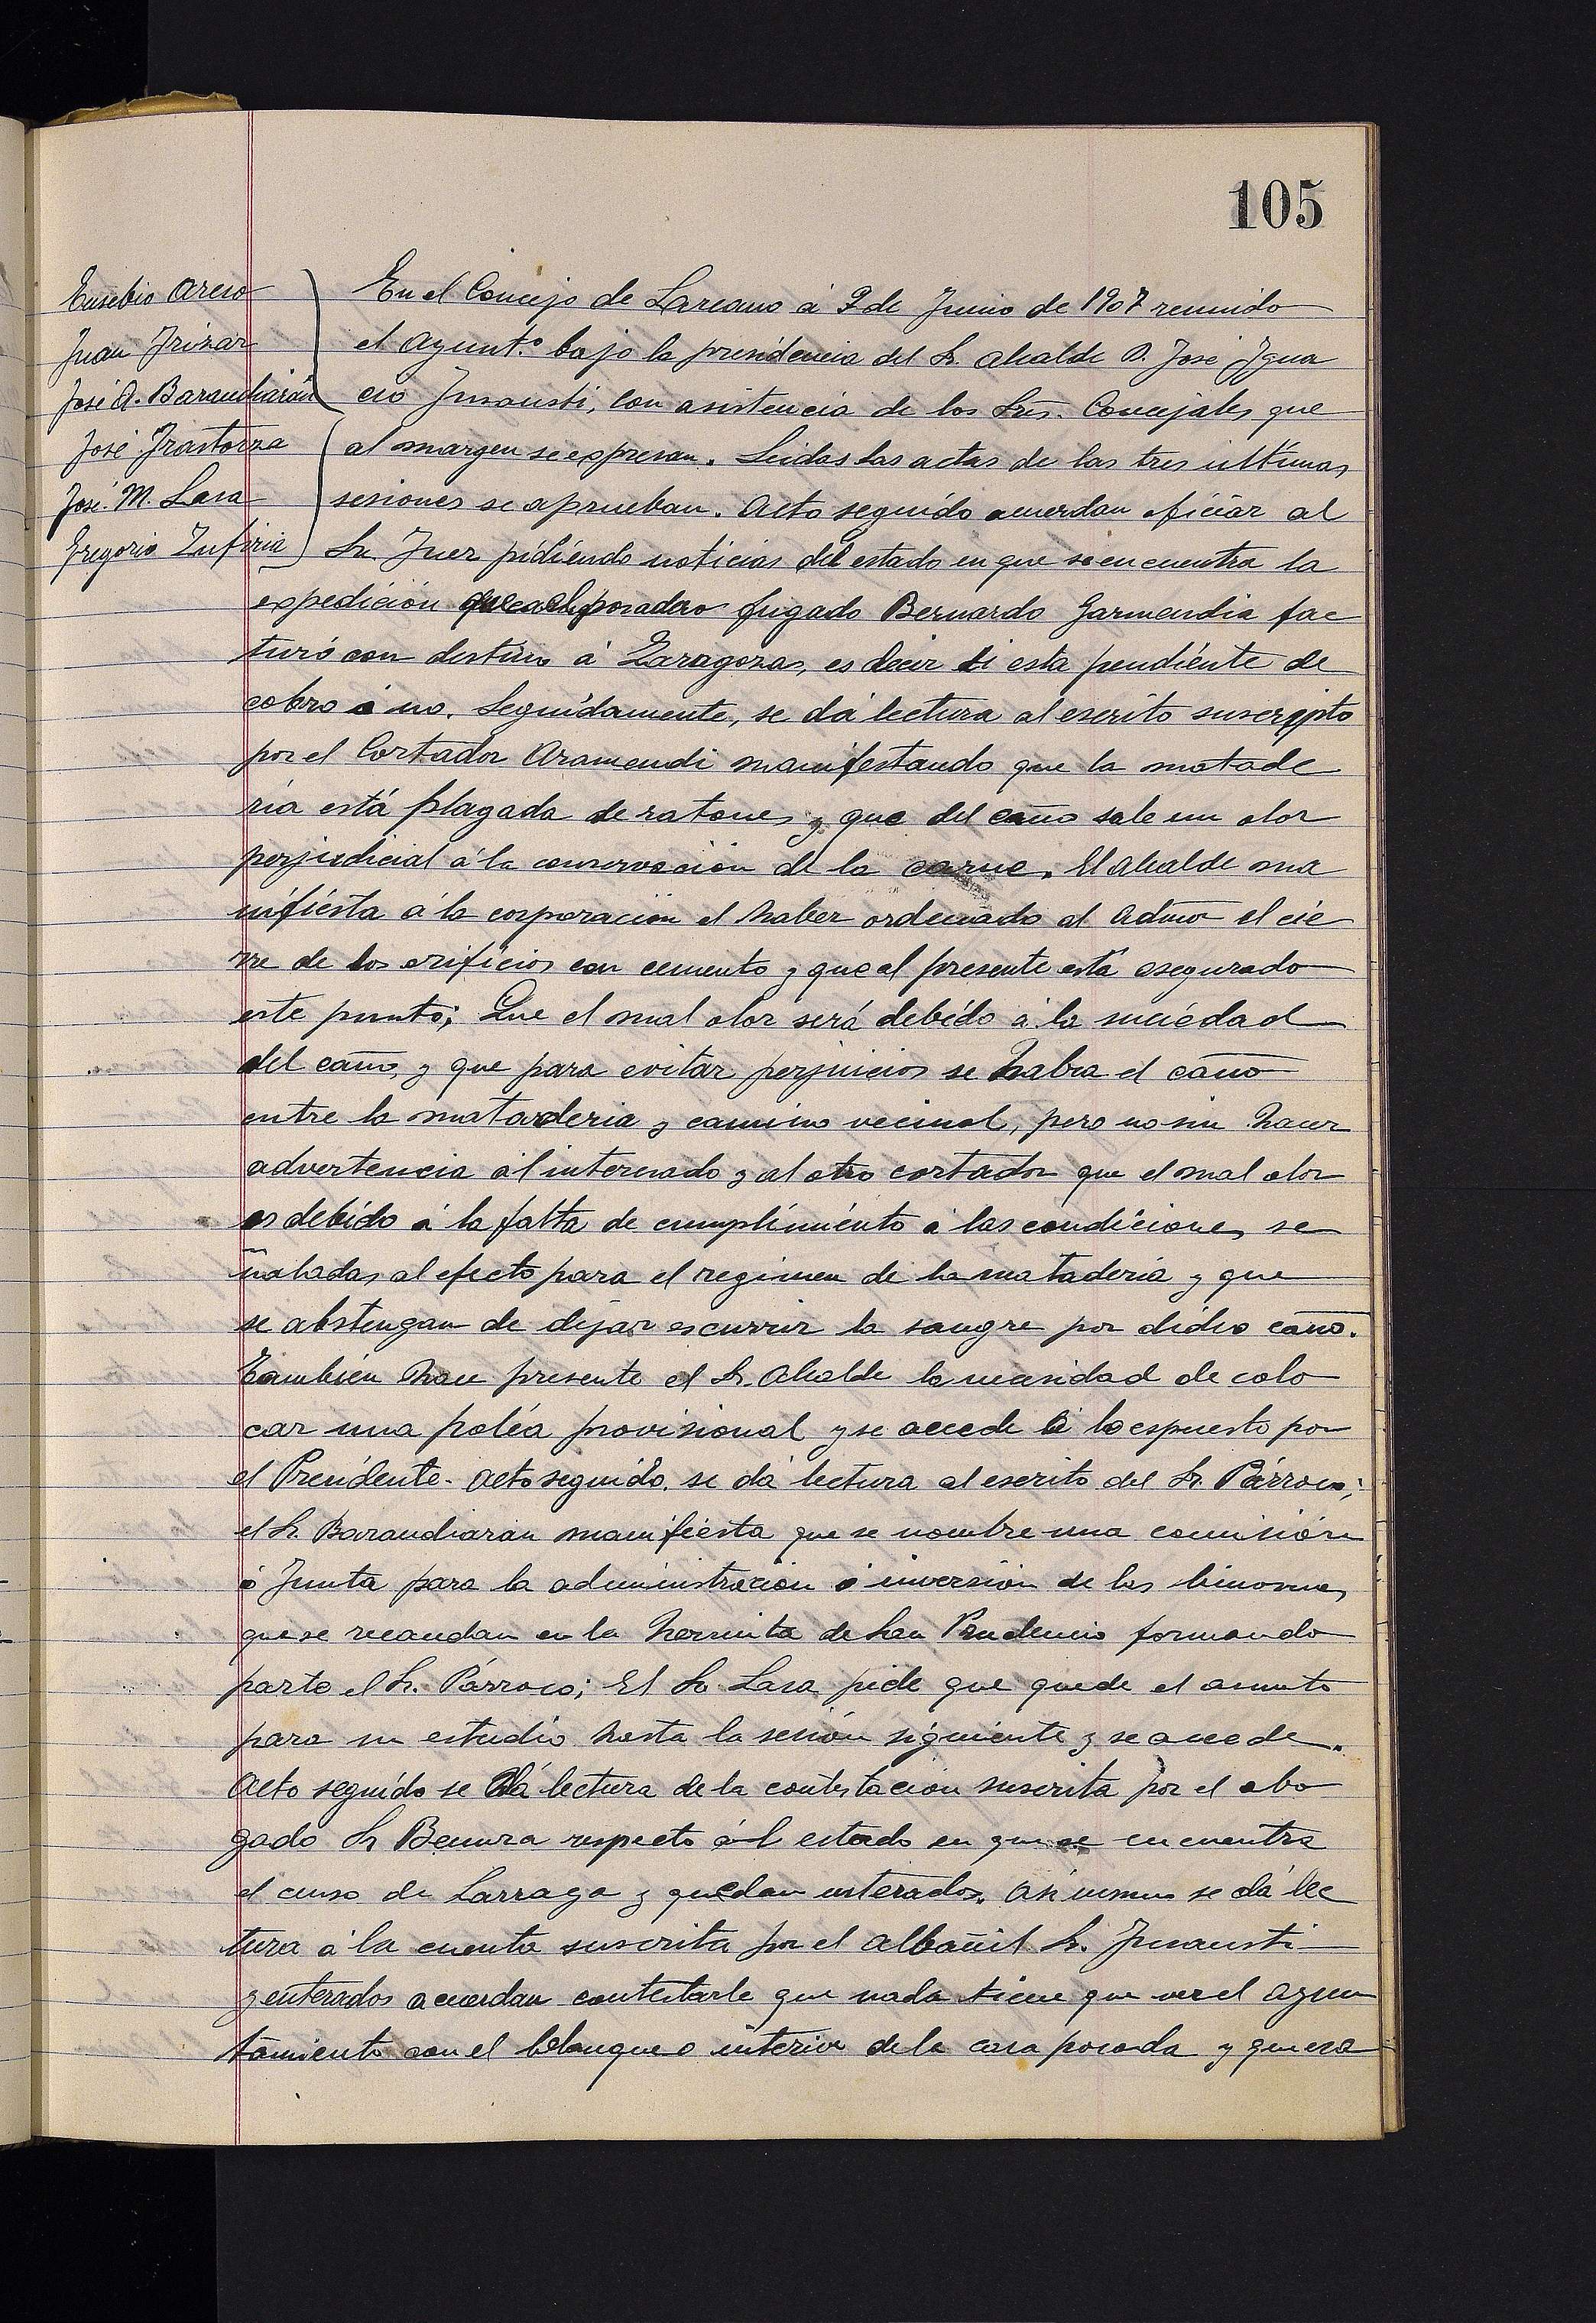 105
Eusebio Areso
Juan Irizar
José A. Barandiarán
José Irastorza
José M. Lasa
Gregorio Zufiria
En el Concejo de Lazcano á 9 de Junio de 1907 reunido
el Ayunt.º bajo la presidencia del Sr. Alcalde D. José Igna
cio Insausti, con asistencia de los Sres. Concejales que
al margen se expresan. Leidas las actas de las tres ultimas
sesiones se aprueban. Acto seguido acuerdan oficiar al
Sr. Juez pidiendo noticias del estado en que se encuentra la
expedición que el posadero fugado Bernardo Garmendia fac
turó con destino á Zaragoza, es decir si esta pendiente de
cobro ó no. Seguidamente, se dá lectura al escrito suscripto
por el Cortador Aramendi manifestando que la matade
ria está plagada de ratones y que del caño sale un olor
perjudicial á la conservación de la carne. El alcalde ma
nifiesta á la corporación el haber ordenado al Admor el cie
rre de los orificios con cemento y que al presente está asegurado
este punto; Que el mal olor será debido á la suciedad
del caño, y que para evitar perjuicios se habra el caño
entre la mataderia y camino vecinal, pero no sin hacer
advertencia al interesado y al otro cortador que el mal olor
es debido á la falta de cumplimiento á las condiciones se
ñaladas al efecto para el regimen de la mataderia y que
se abstengan de dejar escurrir la sangre por dicho caño.
Tambien hace presente el Sr. Alcalde la necesidad de colo
car una poléa provisional y se accede á lo espuesto por
el Presidente. Acto seguido, se dá lectura al escrito del Sr. Párroco;
el Sr. Barandiaran manifiesta que se nombre una comisión
ó Junta para la administración ó inversión de las limosnas
que se recaudan en la hermita de San Prudencio formando
parte el Sr. Párroco; El Sr. Lasa pide que quede el asunto
para su estudio hasta la sesión siguiente y se accede.
Acto seguido se dá lectura de la contestación suscrita por el abo
gado Sr respecto ál estado en que se encuentra
el censo de Larraga y quedan enterados. Asi mismo se dá lec
tura á la cuenta suscrita por el albañil Sr. Insausti
y enterados acuerdan contestarle que nada tiene que ver el ayun
tamiento con el blanqueo interior de la casa posada y que esa